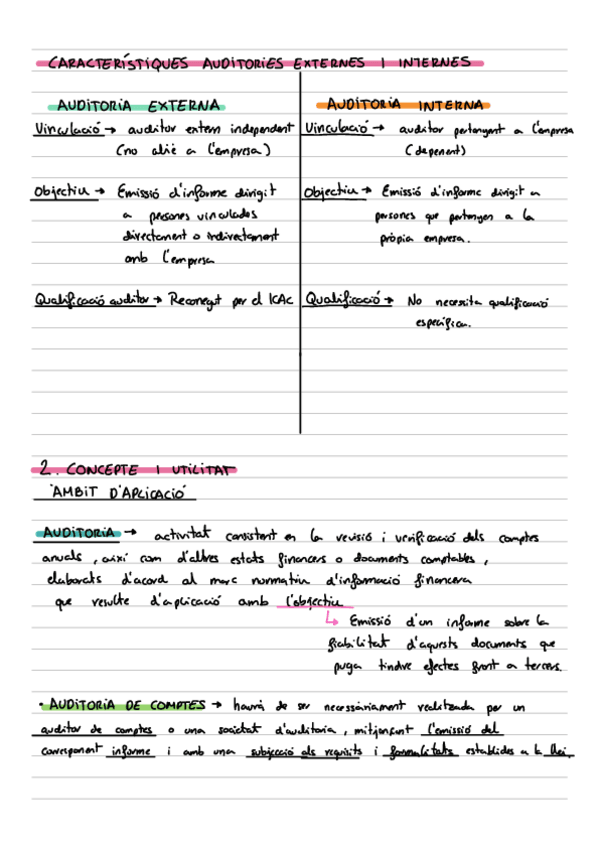 CARACTERÍSTIQUES AUDITORIES EXTERNES I INTERNES
AUDITORIA EXTERNA
Vinculació → auditor extern independent
(no aliè a l'empresa)
Objectiu → Emissió d'informe dirigit
a persones vinculades
directament o indirectament
amb l'empresa
Qualificació auditor → Reconegut per el ICAC
AUDITORIA INTERNA
Vinculació → auditor pertanyent a l'empresa
(depenent)
Objectiu → Emissió d'informe dirigit a
persones que pertanyen a la
pròpia empresa.
Qualificació → No necessita qualificació
específica.
2. CONCEPTE I UTILITAT
ÀMBIT D'APLICACIÓ
AUDITORIA → activitat consistent en la revisió i verificació dels comptes
anuals, així com d'altres estats financers o documents comptables,
elaborats d'acord al marc normatiu d'informació financera
que resulte d'aplicació amb l'objectiu
↳ Emissió d'un informe sobre la
fiabilitat d'aquests documents que
puga tindre efectes front a tercers.
• AUDITORIA DE COMPTES → haurà de ser necessàriament realitzada per un
auditor de comptes o una societat d'auditoria, mitjançant l'emissió del
corresponent informe i amb una subjecció als requisits i formalitats establides a la llei.